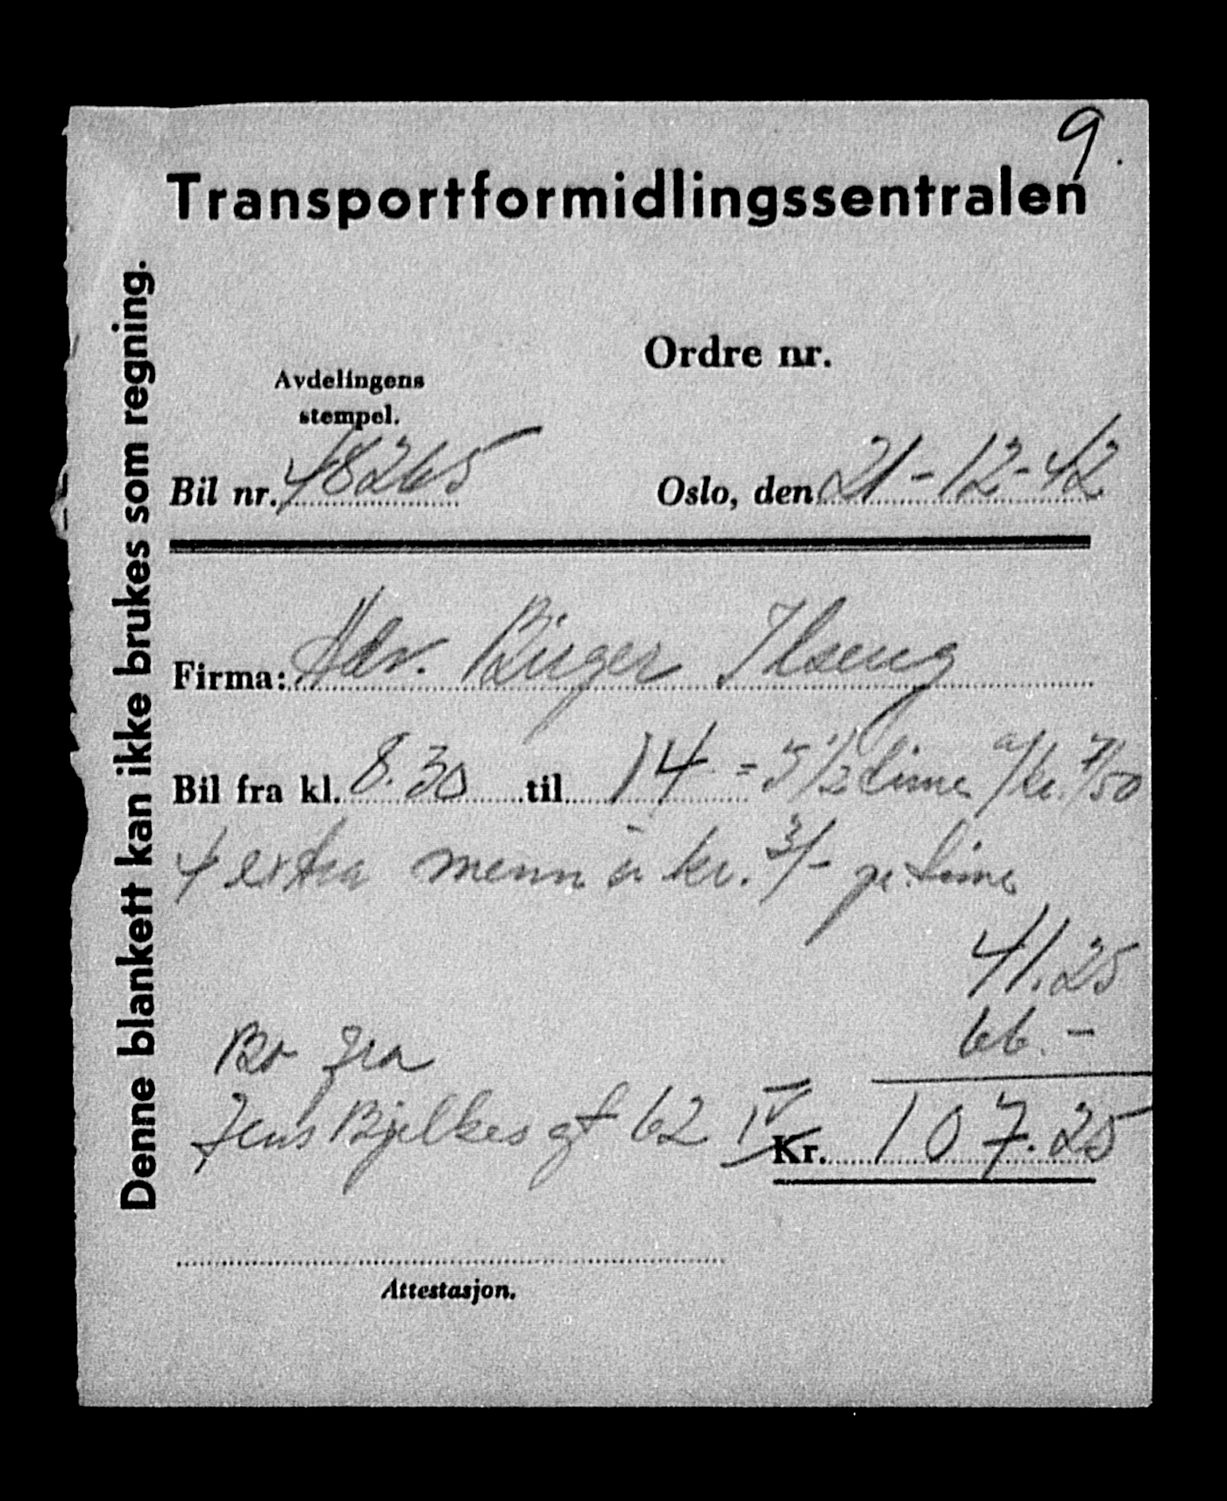 9.
Transportformidlingssentralen
Denne blankett kan ikke brukes som regning.
Ordre nr.
Avdelingens
stempel.
Bil nr. 48265 Oslo, den 21-12-42
Firma: Adv. Birger Ilseng
Bil fra kl. 8.30 til 14 = 5 1/2 time a/kr. 7/50
4 extra menn à kr. 3/- pr. time
41.25
66.-
Bo fra
Jens Bjelkes gt 62 IV
Kr. 107.25
Attestasjon.